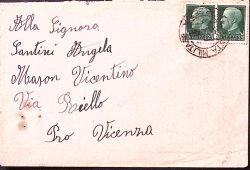 Alla Signora
Santini Angela
Mason Vicentino
Via Riello
Pro Vicenza